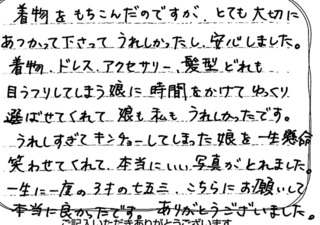 着物をもちこんだのですが、とても大切に
あつかって下さって うれしかったし、安心しました。
着物、ドレス、アクセサリー、髪型どれも
目うつりしてしまう娘に 時間をかけてゆっくり
選ばせてくれて 娘も私も うれしかったです。
うれしすぎてキンチョーしてしまった娘を一生懸命
笑わせてくれて、本当にいい写真がとれました。
一生に一度の3才の七五三、こちらにお願いして
本当に良かったです。 ありがとうございました。
ご記入いただきありがとうございます